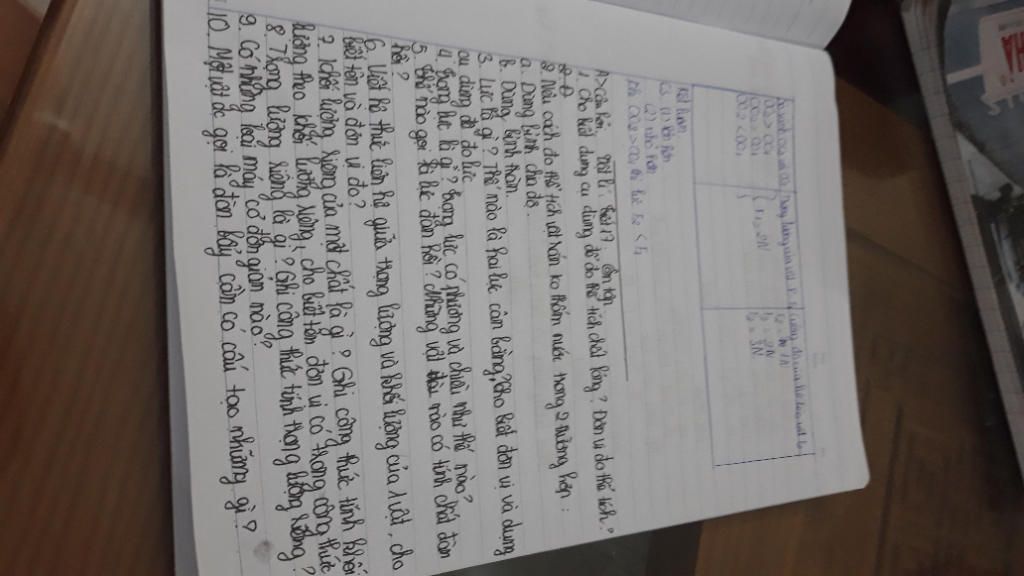 So sánh OO2 và OO1
Trọng lượng của vật P = F1
Cường độ của lực kéo vật F2
OO2 > OO1
OO2 = OO1
OO2 < OO1
F1 = 2N
F2 = 1N
F2 = 2N
F2 = 3N
Kết luận
C3 (1) lớn hơn
(2) nhỏ hơn
Khi OO2 > OO1 thì lực F2 < F1
Vật lí: Bài 17 Ôn tập
A> Câu hỏi
1. Cho biết dụng cụ dùng để đo thể tích chất lỏng? Đơn vị đo thể tích?
2. Nêu cách đo thể tích vật rắn ko thấm nước trong 2 trường hợp:
a. Dùng bình chia độ.
b. Dùng bình tràn.
3. Lực là gì? Thế nào là hai lực cân bằng, cho biết đơn vị và dụng
cụ dùng để đo lực
4. Trọng lực là gì? Trọng lực có phương và chiều như thế nào?
5. Thế nào gọi là lực đàn hồi? Những vật nào có tính chất đàn
hồi?
6. Viết hệ thức liên hệ giữa trọng lượng và khối lượng của 1 vật, cho
biết tên và đơn vị đo?
7. Khối lượng riêng của một chất là gì? Ghi công thức tính khối
lượng theo khối lượng riêng, cho biết tên đơn vị có trong công thức
8. Trọng lượng riêng là gì? Ghi công thức tính trọng lượng riêng?
9. Có những loại máy cơ đơn giản nào?
10. Một vật đc gọi là đòn bẩy cần có cấu tạo những gì?